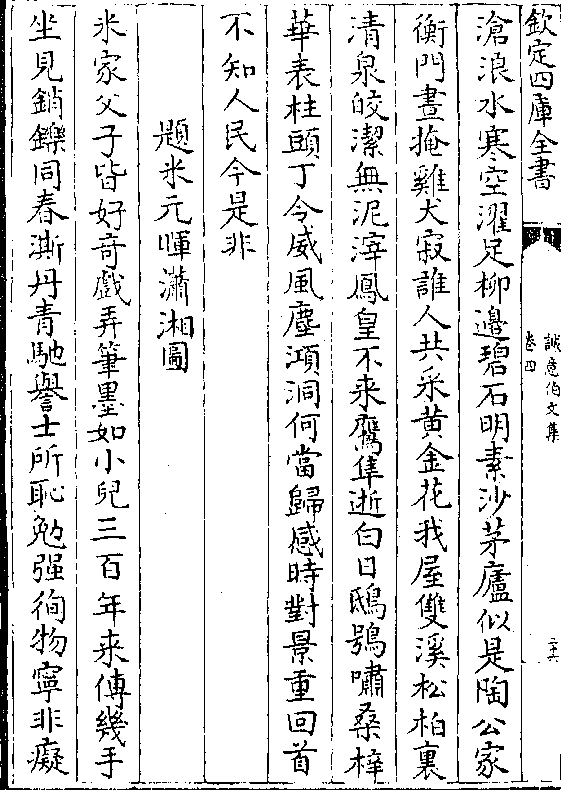 欽定四庫全書
誠意伯文集
卷四
二十六
滄浪水寒空濯足柳邊碧石明素沙茅廬似是陶公家
衡門晝掩雞犬寂誰人共采黄金花我屋雙溪松柏裏
清泉皎潔無泥滓鳳皇不来鷹隼逝白日鴟鴞嘯桑梓
華表柱頭丁令威風塵澒洞何當歸感時對景重回首
不知人民今是非
題米元暉瀟湘圖
米家父子皆好奇戲弄筆墨如小兒三百年来傳幾手
坐見銷鑠同春澌丹青馳譽士所恥勉强徇物寧非癡